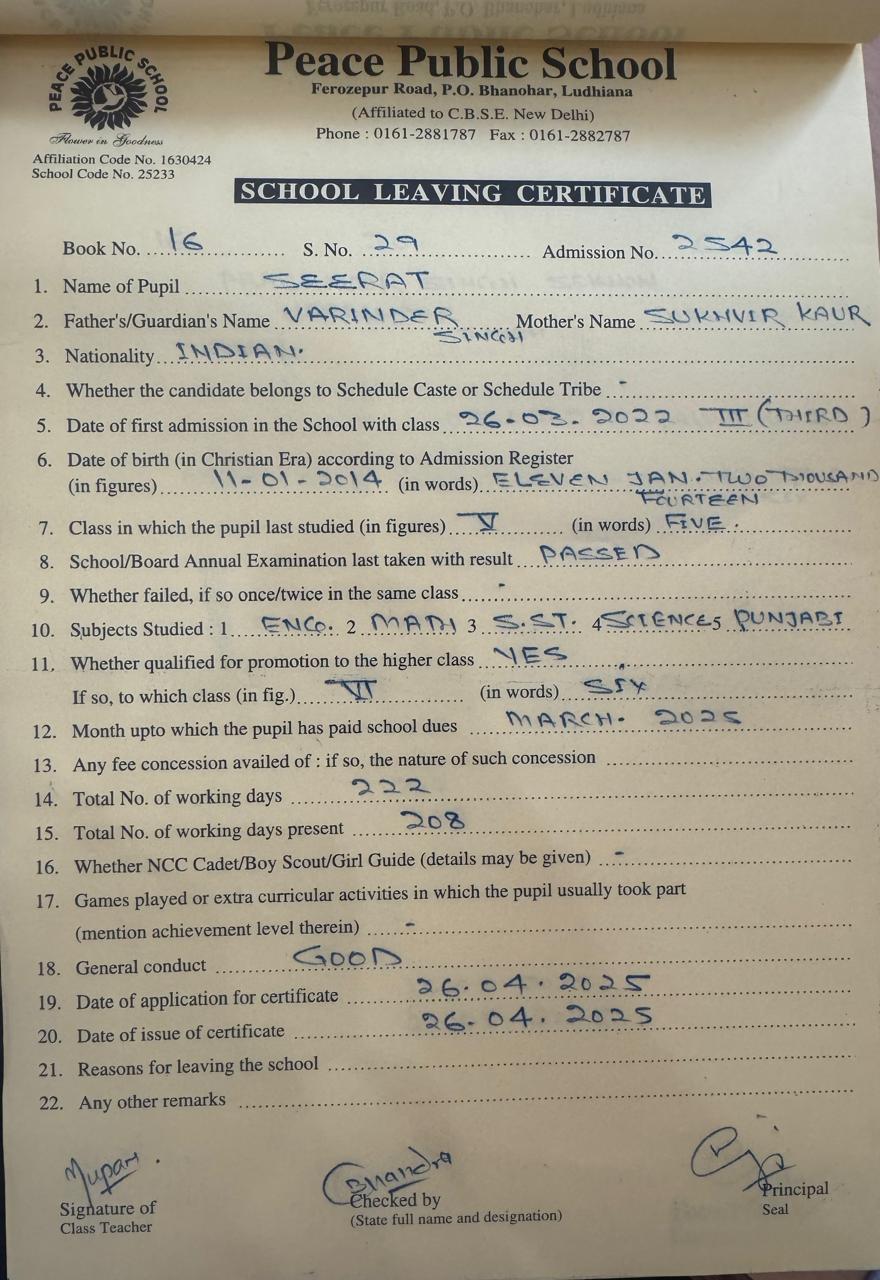 PEACE PUBLIC SCHOOL
Flower in Goodness
Affiliation Code No. 1630424
School Code No. 25233
Peace Public School
Ferozepur Road, P.O. Bhanohar, Ludhiana
(Affiliated to C.B.S.E. New Delhi)
Phone : 0161-2881787 Fax : 0161-2882787
SCHOOL LEAVING CERTIFICATE
Book No. 16 S. No. 29 Admission No. 2542
1. Name of Pupil SEERAT
2. Father's/Guardian's Name VARINDER SINGH Mother's Name SUKHVIR KAUR
3. Nationality INDIAN.
4. Whether the candidate belongs to Schedule Caste or Schedule Tribe -
5. Date of first admission in the School with class 26-03-2022 III (THIRD)
6. Date of birth (in Christian Era) according to Admission Register
(in figures) 11-01-2014 (in words) ELEVEN JAN. TWO THOUSAND
FOURTEEN
7. Class in which the pupil last studied (in figures) V (in words) FIVE.
8. School/Board Annual Examination last taken with result PASSED
9. Whether failed, if so once/twice in the same class -
10. Subjects Studied : 1 ENG. 2 MATH 3 S.ST. 4 SCIENCE 5 PUNJABI
11. Whether qualified for promotion to the higher class YES
If so, to which class (in fig.) VI (in words) SIX
12. Month upto which the pupil has paid school dues MARCH. 2025
13. Any fee concession availed of : if so, the nature of such concession
14. Total No. of working days 222
15. Total No. of working days present 208
16. Whether NCC Cadet/Boy Scout/Girl Guide (details may be given) -
17. Games played or extra curricular activities in which the pupil usually took part
(mention achievement level therein) -
18. General conduct GOOD
19. Date of application for certificate 26.04.2025
20. Date of issue of certificate 26.04.2025
21. Reasons for leaving the school
22. Any other remarks
Signature of
Class Teacher
Checked by
(State full name and designation)
Principal
Seal